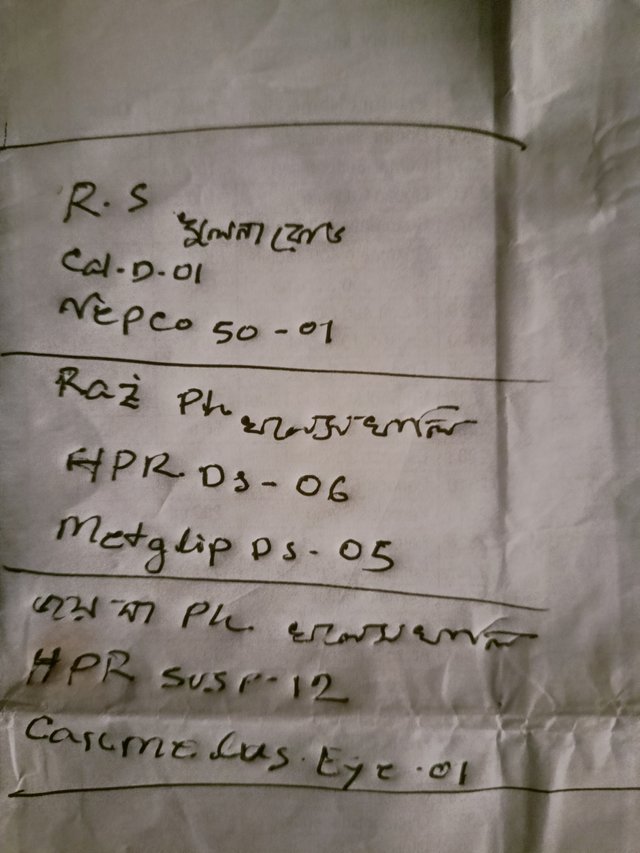 R. S
খুলনা রোড
Cal. D. 01
Nepco 50 - 01
Raz Ph
HPR DS - 06
Metglip DS - 05
Ph.
HPR susp - 12
Eye. 01